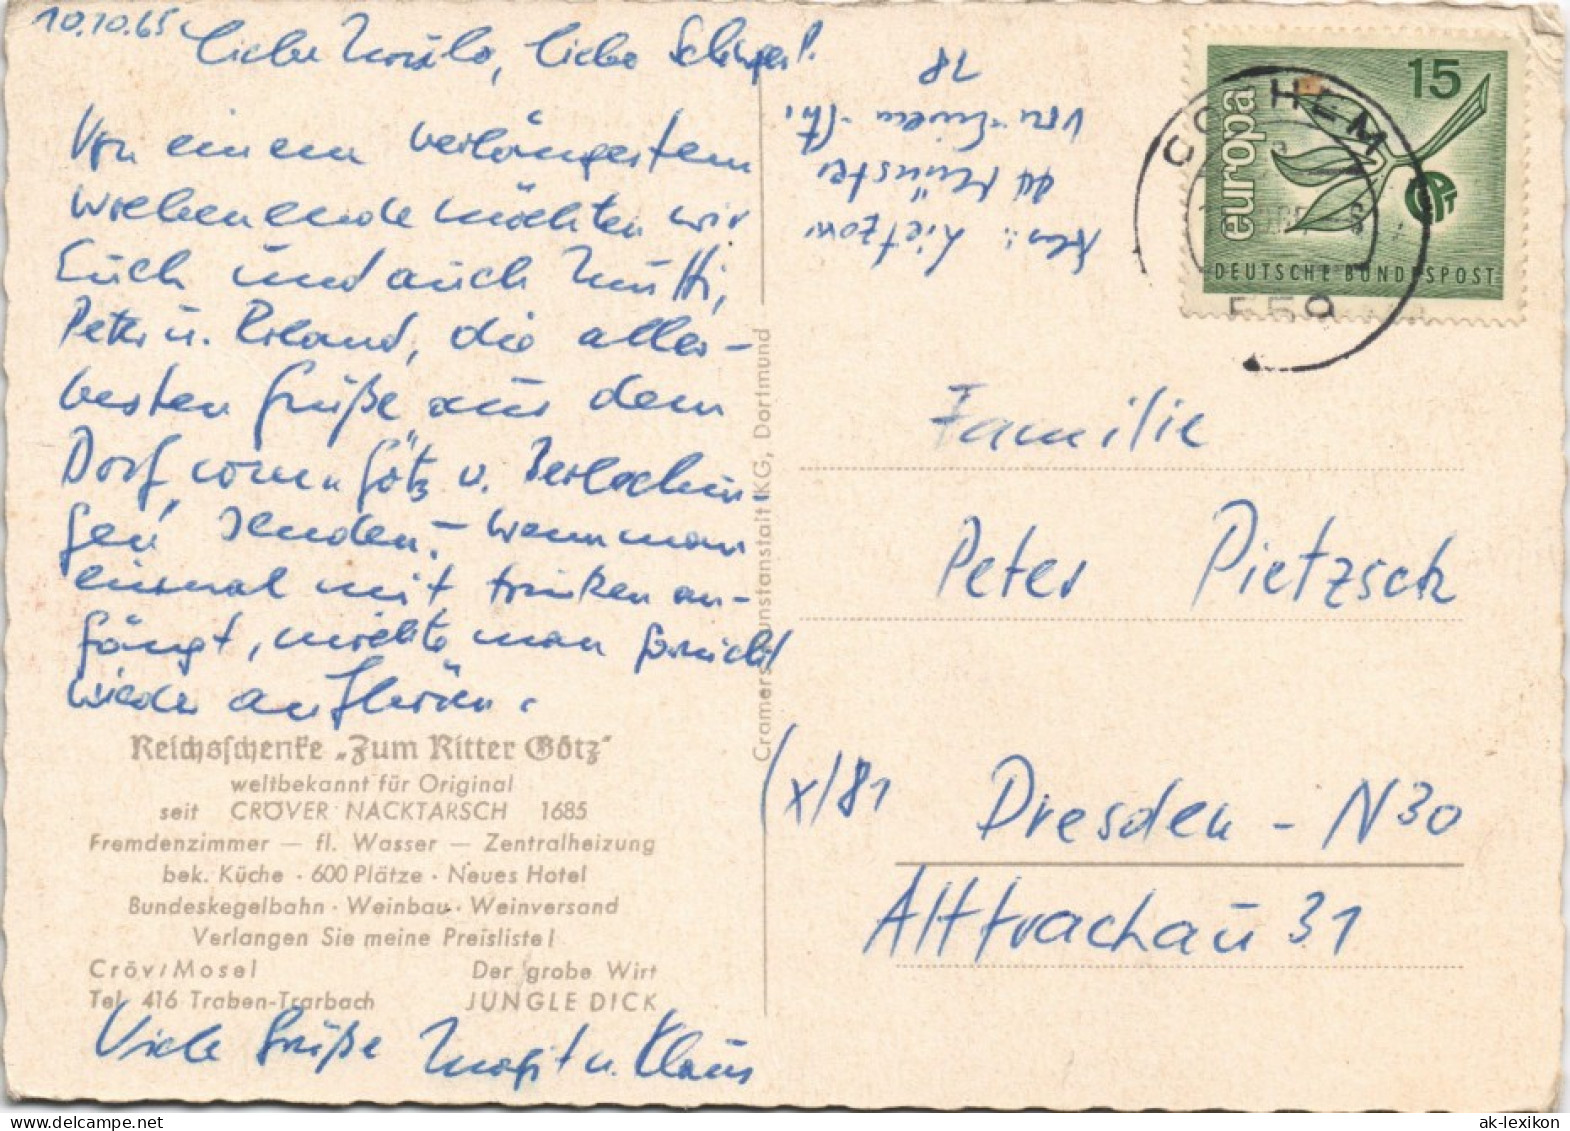 10.10.65
Liebe
liebe
Von einem verlängertem
Wochenende möchten wir
Euch und auch Mutti,
Peter u. Roland, die aller-
besten Grüße aus dem
Dorf, Götz v. Berlichin-
gen senden. – Wenn man
einmal mit trinken an-
fängt, möchte man garnicht
wieder aufhören.
Reichsschenke „Zum Ritter Götz"
weltbekannt für Original
seit CRÖVER NACKTARSCH 1685
Fremdenzimmer — fl. Wasser — Zentralheizung
bek. Küche · 600 Plätze · Neues Hotel
Bundeskegelbahn · Weinbau · Weinversand
Verlangen Sie meine Preisliste!
Cröv/Mosel Der grobe Wirt
Tel. 416 Traben-Trarbach JUNGLE DICK
Viele Grüße Margit u. Klaus
Cramers Kunstanstalt KG, Dortmund
Abs.: Lietzow
44 Münster
18
europa
15
CEPT
DEUTSCHE BUNDESPOST
COCHEM
559
Familie
Peter Pietzsch
(x/81
Dresden - N30
Alttrachau 31
ak-lexikon.com